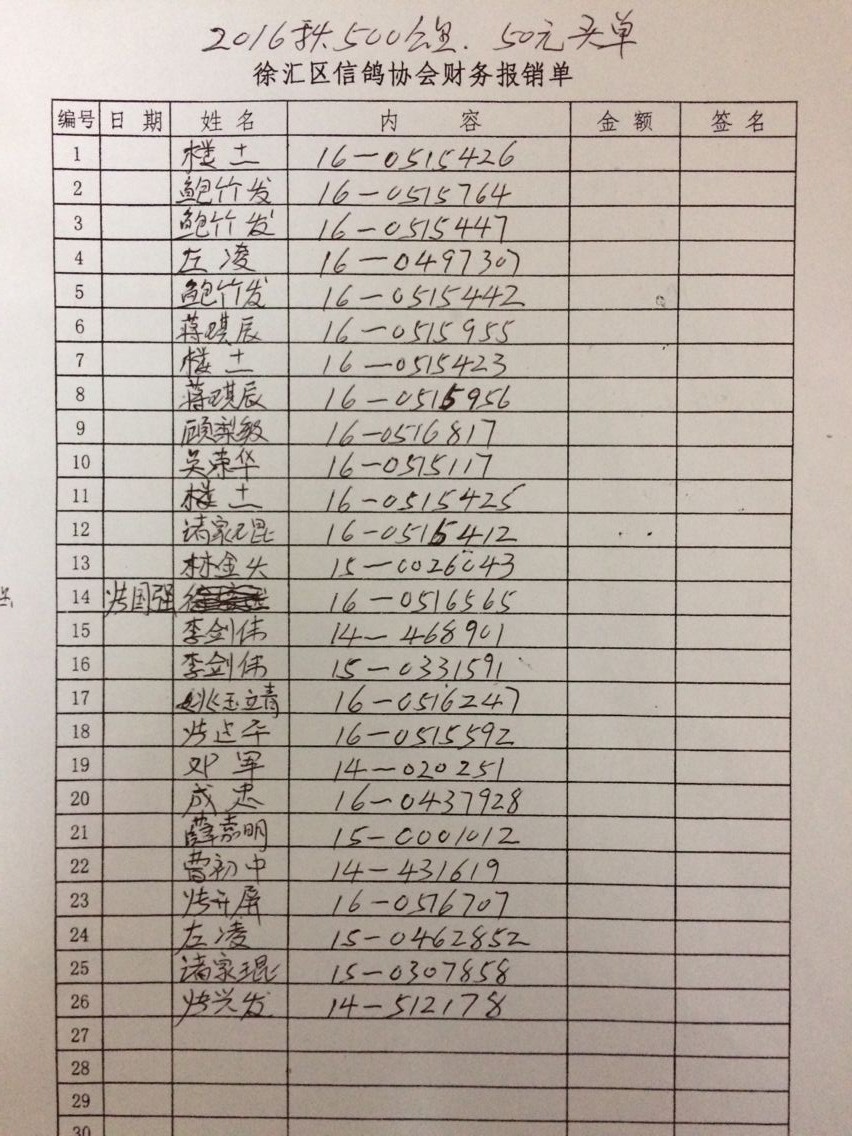 2016秋.500公里. 50元买单
徐汇区信鸽协会财务报销单
编号 日期 姓名 内容 金额 签名
1 楼土 16-0515426
2 鲍竹发 16-0515764
3 鲍竹发 16-0515447
4 左凌 16-0497307
5 鲍竹发 16-0515442
6 蒋琪辰 16-0515955
7 楼土 16-0515423
8 蒋琪辰 16-0515956
9 顾梨毅 16-0516817
10 吴荣华 16-0515117
11 楼土 16-0515425
12 诸家琨 16-0515412
13 林金头 15-0026043
14 国强 16-0516565
15 李剑伟 14-468901
16 李剑伟 15-0331591
17 姚玉立青 16-0516247
18 16-0515592
19 邓军 14-020251
20 成忠 16-0437928
21 薛嘉明 15-0001012
22 曹初中 14-431619
23 开屏 16-0516707
24 左凌 15-0462852
25 诸家琨 15-0307858
26 兴发 14-512178
27
28
29
30